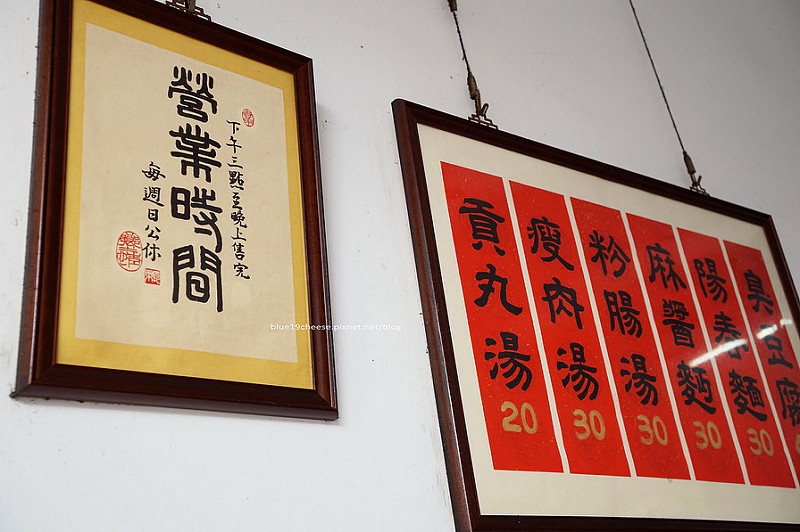 下午三點至晚上售完
營業時間
每週日公休
臭豆腐
陽春麵 30
麻醬麵 30
粉腸湯 30
瘦肉湯 30
貢丸湯 20
blue19cheese.pixnet.net/blog